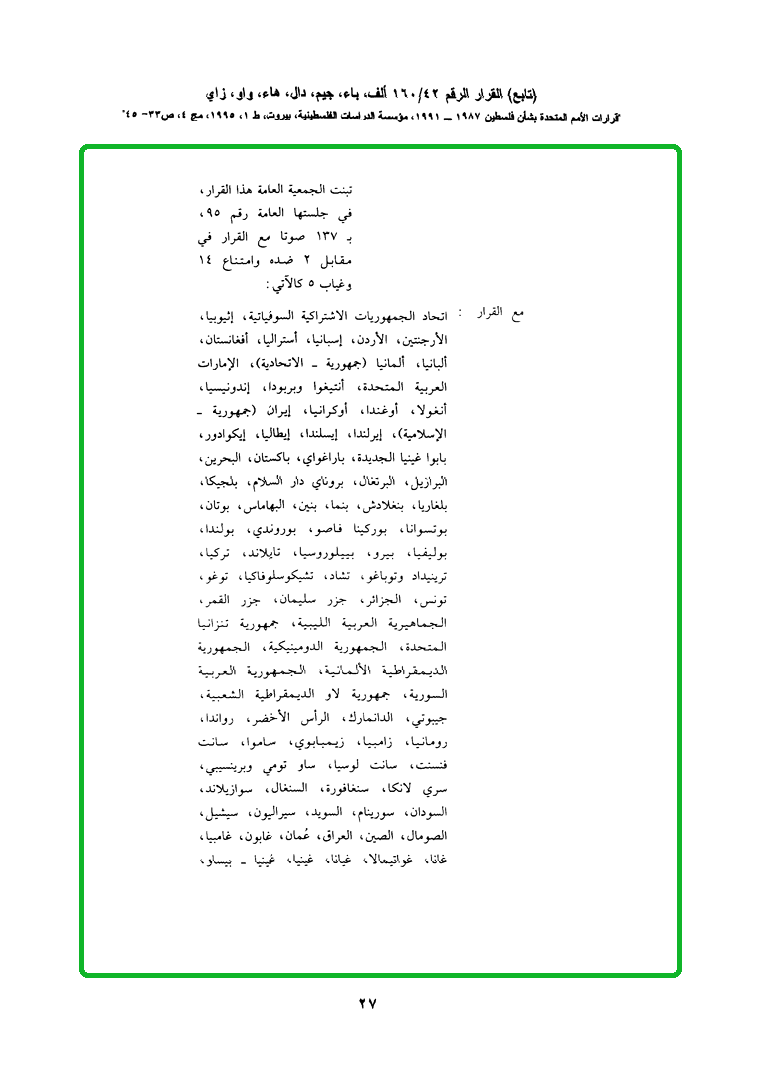 (تابع) القرار الرقم ١٦٠/٤٢ ألف، باء، جيم، دال، هاء، واو، زاي
"قرارات الأمم المتحدة بشأن فلسطين ١٩٨٧ ــ ١٩٩١، مؤسسة الدراسات الفلسطينية، بيروت، ط ١، ١٩٩٥، مج ٤، ص٣٣- ٤٥"
تبنت الجمعية العامة هذا القرار،
في جلستها العامة رقم ٩٥،
بـ ١٣٧ صوتا مع القرار في
مقابل ٢ ضده وامتناع ١٤
وغياب ٥ كالآتي:
مع القرار : اتحاد الجمهوريات الاشتراكية السوفياتية، إثيوبيا،
الأرجنتين، الأردن، إسبانيا، أستراليا، أفغانستان،
ألبانيا، ألمانيا (جمهورية ــ الاتحادية)، الإمارات
العربية المتحدة، أنتيغوا وبربودا، إندونيسيا،
أنغولا، أوغندا، أوكرانيا، إيران (جمهورية ــ
الإسلامية)، إيرلندا، إيسلندا، إيطاليا، إيكوادور،
بابوا غينيا الجديدة، باراغواي، باكستان، البحرين،
البرازيل، البرتغال، بروناي دار السلام، بلجيكا،
بلغاريا، بنغلادش، بنما، بنين، البهاماس، بوتان،
بوتسوانا، بوركينا فاصو، بوروندي، بولندا،
بوليفيا، بيرو، بييلوروسيا، تايلاند، تركيا،
ترينيداد وتوباغو، تشاد، تشيكوسلوفاكيا، توغو،
تونس، الجزائر، جزر سليمان، جزر القمر،
الجماهيرية العربية الليبية، جمهورية تنزانيا
المتحدة، الجمهورية الدومينيكية، الجمهورية
الديمقراطية الألمانية، الجمهورية العربية
السورية، جمهورية لاو الديمقراطية الشعبية،
جيبوتي، الدانمارك، الرأس الأخضر، رواندا،
رومانيا، زامبيا، زيمبابوي، ساموا، سانت
فنسنت، سانت لوسيا، ساو تومي وبرينسيبي،
سري لانكا، سنغافورة، السنغال، سوازيلاند،
السودان، سورينام، السويد، سيراليون، سيشيل،
الصومال، الصين، العراق، عُمان، غابون، غامبيا،
غانا، غواتيمالا، غيانا، غينيا، غينيا ــ بيساو،
٢٧